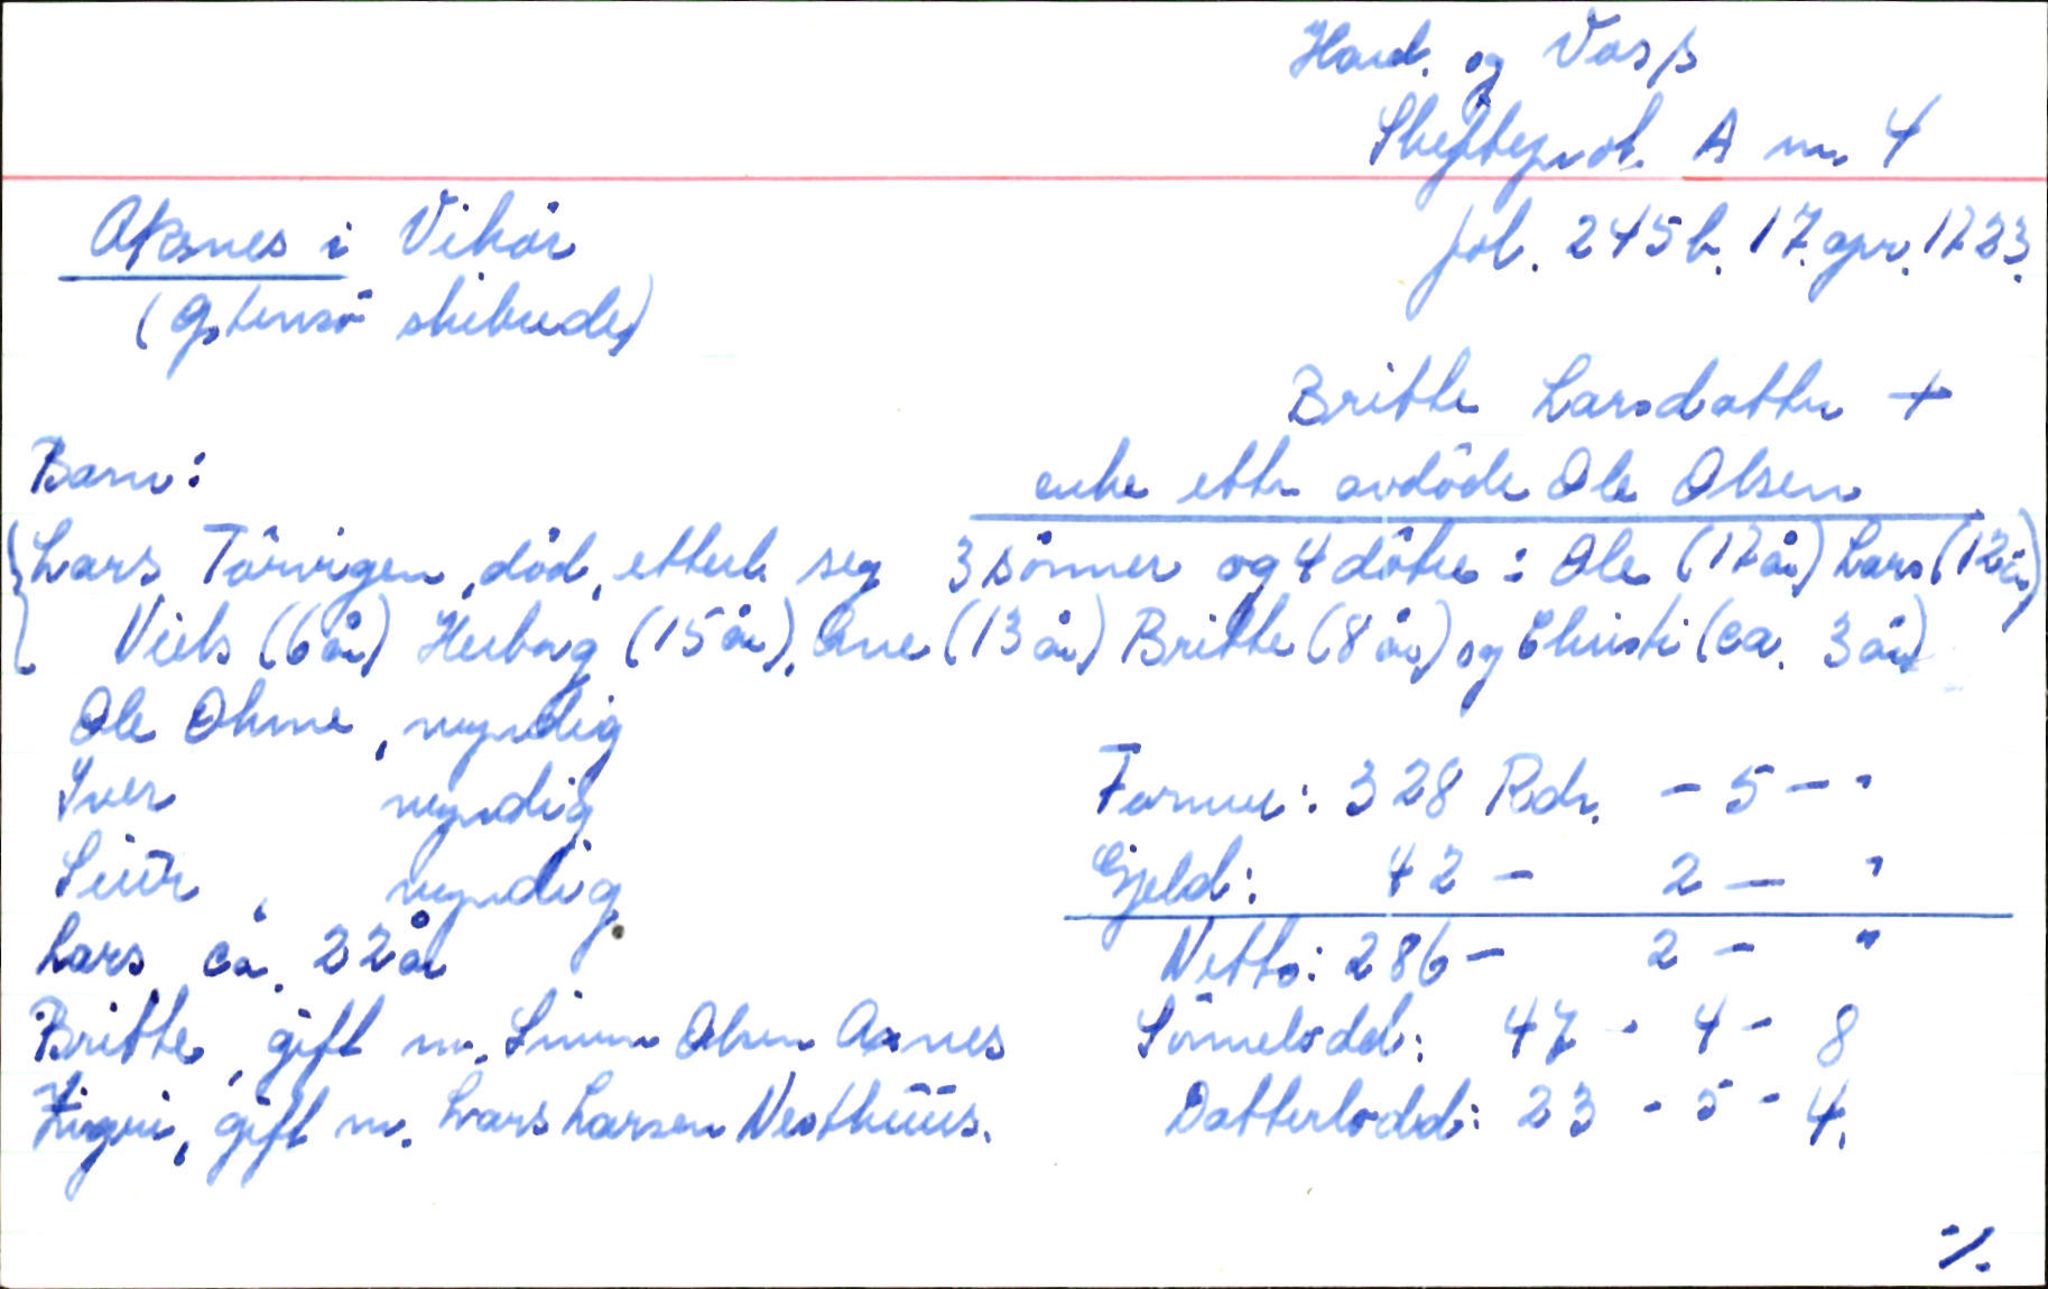 Hard. og Voss
Skifteprot. A nr. 4
fol. 245b, 17. apr. 1723.
Aksnes i Vikör
(Östensö skibrede)
Britte Larsdatter +
enke etter avdöde Ole Olsen
Barn:
Lars Törvigen, död, etterl. seg 3 sönner og 4 döttre: Ole (17 år) Lars (12 år)
Niels (6 år) Herborg (15 år), Ane (13 år) Britte (8 år) og Christi (ca. 3 år)
Ole Ohme, myndig
Iver myndig
Siür, myndig
Lars ca. 22 år
Britte, gift m. Simen Olsen Axnes
Zigri, gift m. Lars Larsen Nesthüüs.
Formue: 328 Rdr. - 5 - "
Gjeld: 42 - 2 - "
Netto: 286 - 2 - "
Sönnelodd: 47 - 4 - 8
Datterlodd: 23 - 5 - 4.
./.